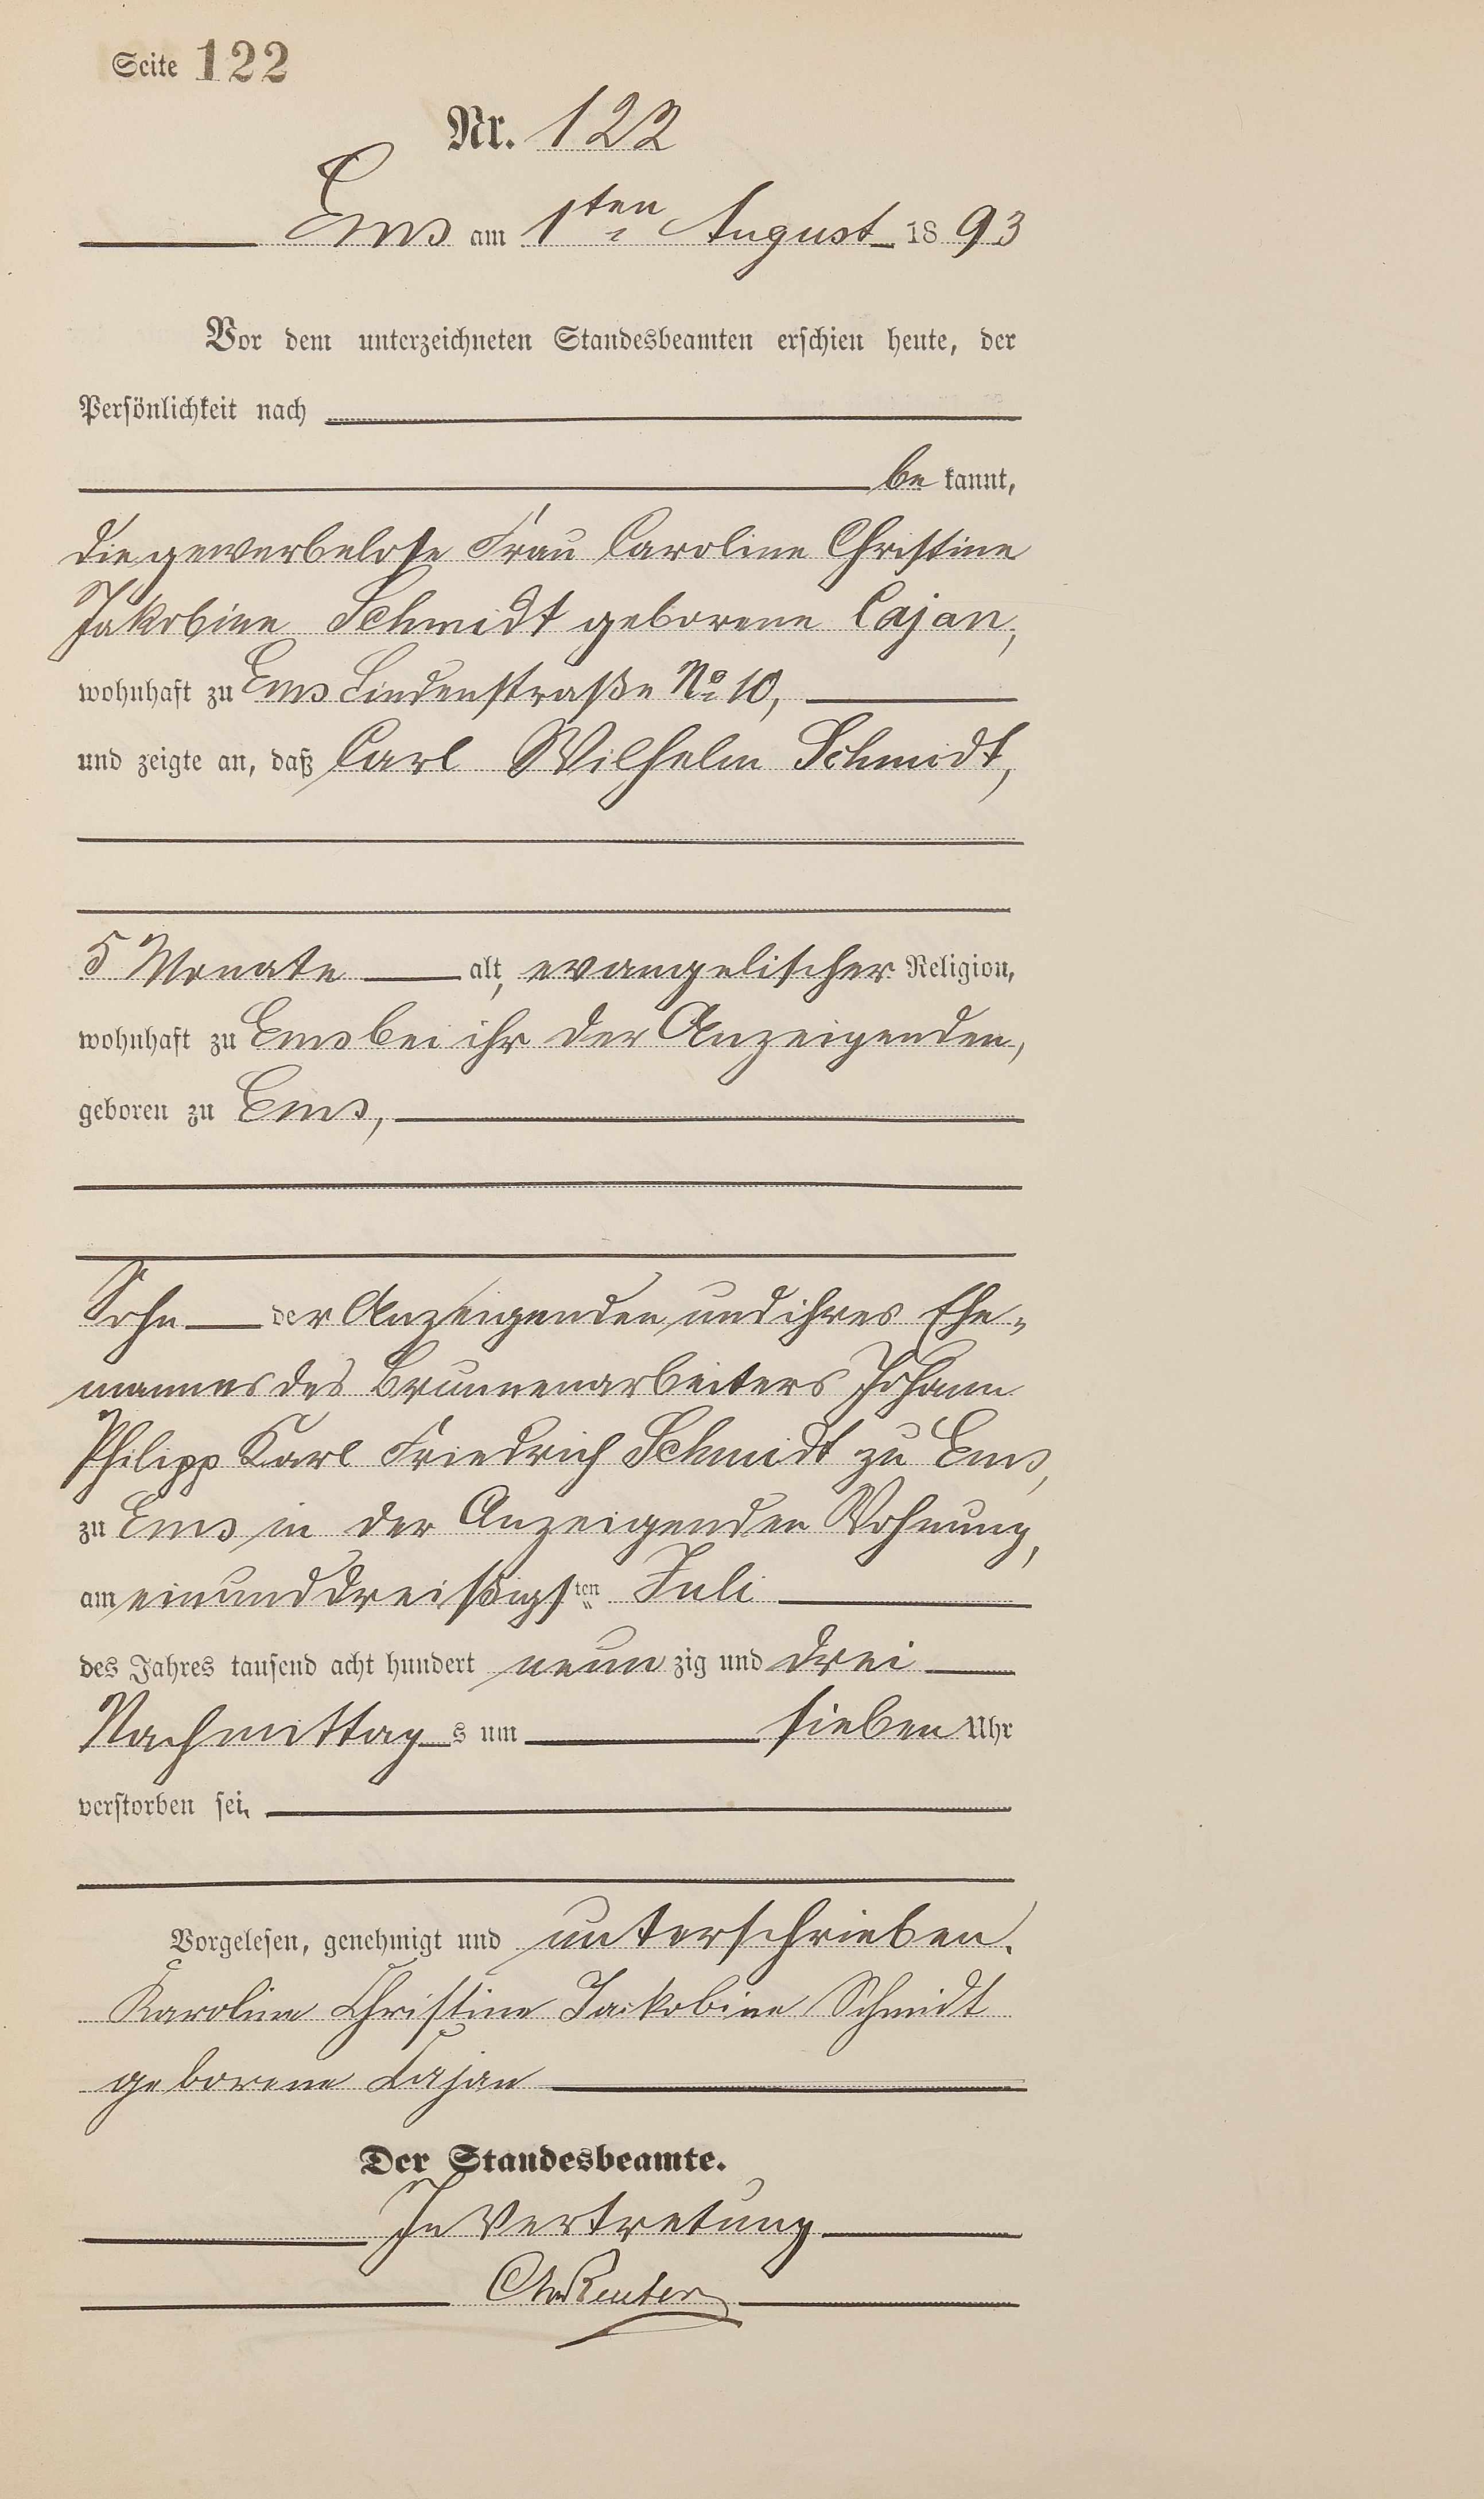 Seite 122
Nr. 122
Ems am 1ten August 1893
Vor dem unterzeichneten Standesbeamten erschien heute, der
Persönlichkeit nach
be kannt,
die gewerbelose Frau Caroline Christine
Jakobine Schmidt geborene Cajan,
wohnhaft zu Ems Lindenstraße No 10,
und zeigte an, daß Carl Wilhelm Schmidt,
5 Monate alt, evangelischer Religion,
wohnhaft zu Ems bei ihr der Anzeigenden,
geboren zu Ems,
Sohn der Anzeigenden und ihres Ehe-
mannes des Brunnenarbeiters Johann
Philipp Karl Friedrich Schmidt zu Ems,
zu Ems in der Anzeigenden Wohnung,
am einunddreißigsten Juli
des Jahres tausend acht hundert neun zig und drei
Nachmittag s um sieben Uhr
verstorben sei.
Vorgelesen, genehmigt und unterschrieben.
Karoline Christine Jackobine Schmidt
geborene Cajan
Der Standesbeamte.
In Vertretung
Reuter